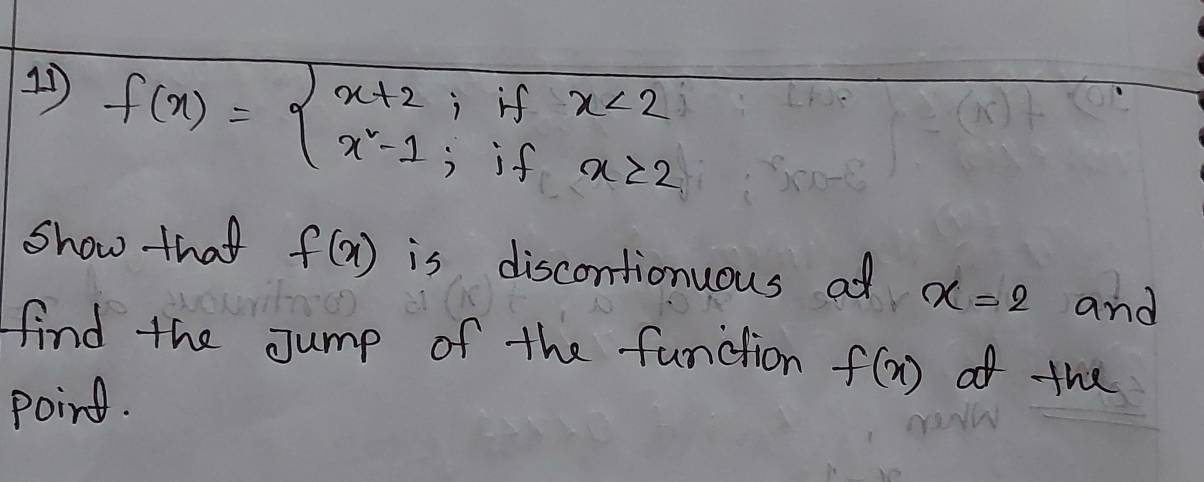 11) f(x) = { x+2 ; if x<2
x²-1 ; if x≥2
Show that f(x) is discontionuous at x=2 and
find the Jump of the function f(x) at the
point.